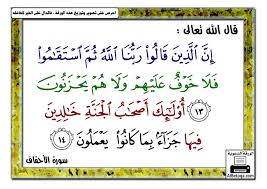 احرص على تصوير وتوزيع هذه الورقة ، فالدال على الخير كفاعله
قال الله تعالى :
إِنَّ الَّذِينَ قَالُوا رَبُّنَا اللَّهُ ثُمَّ اسْتَقَامُوا
فَلَا خَوْفٌ عَلَيْهِمْ وَلَا هُمْ يَحْزَنُونَ
﴿١٣﴾ أُولَٰئِكَ أَصْحَابُ الْجَنَّةِ خَالِدِينَ
فِيهَا جَزَاءً بِمَا كَانُوا يَعْمَلُونَ ﴿١٤﴾
سورة الأحقاف